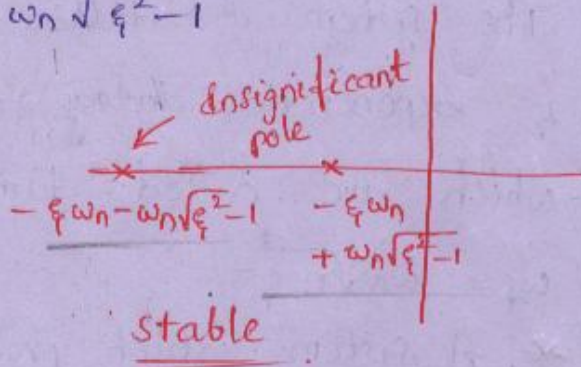 ωn √ξ²-1
Insignificant
pole
- ξωn - ωn√ξ²-1
- ξωn
+ ωn√ξ²-1
stable